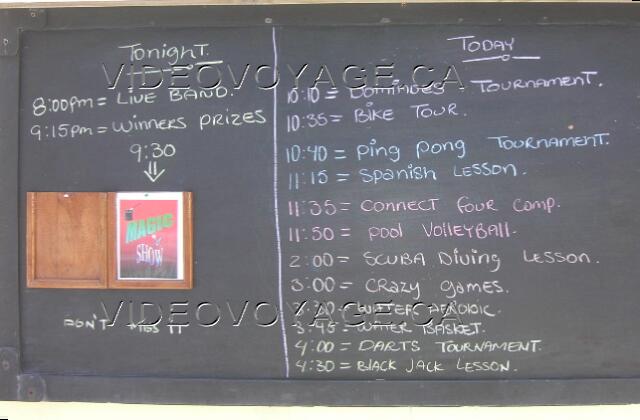 Tonight.
8:00pm = LIVE BAND.
9:15pm = WINNERS PRIZES
9:30
MAGIC
SHOW
DON'T MISS IT
TODAY
10:10 = DOMINOES TOURNAMENT.
10:35 = BIKE TOUR.
10:40 = Ping Pong TOURNAMENT.
11:15 = Spanish LESSON.
11:35 = CONNECT Four Comp.
11:50 = POOL VOLLEYBALL.
2:00 = SCUBA DIVING LESSON.
3:00 = CRAZY games.
3:30 = WATER AEROBIC.
3:45 = WATER BASKET.
4:00 = DARTS TOURNAMENT.
4:30 = BLACK JACK LESSON.
VIDEOVOYAGE.CA
VIDEOVOYAGE.CA